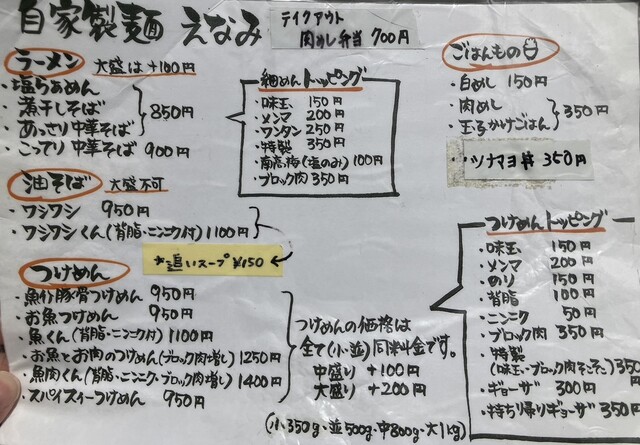 自家製麺 えなみ
テイクアウト
肉めし弁当 700円
ラーメン 大盛は+100円
・塩らぁめん
・煮干しそば
・あっさり中華そば
850円
・こってり中華そば 900円
油そば 大盛不可
・ワシワシ 950円
・ワシワシくん(背脂・ニンニク付) 1100円
*追いスープ ¥150
つけめん
・魚介豚骨つけめん 950円
・お魚つけめん 950円
・魚くん(背脂・ニンニク付) 1100円
・お魚とお肉のつけめん(ブロック肉増し) 1250円
・魚肉くん(背脂・ニンニク・ブロック肉増し) 1400円
・スパイスィーつけめん 950円
つけめんの価格は
全て(小・並)同料金です。
中盛り +100円
大盛り +200円
(小350g・並500g・中800g・大1kg)
細めん トッピング
・味玉 150円
・メンマ 200円
・ワンタン 250円
・特製 350円
・南高梅(塩のみ) 100円
・ブロック肉 350円
ごはんもの
・白めし 150円
・肉めし
・玉子かけごはん
350円
・ツナマヨ丼 350円
つけめん トッピング
・味玉 150円
・メンマ 200円
・のり 150円
・背脂 100円
・ニンニク 50円
・ブロック肉 350円
・特製
(味玉・ブロック肉
350円
・ギョーザ 300円
・持ち帰りギョーザ 350円